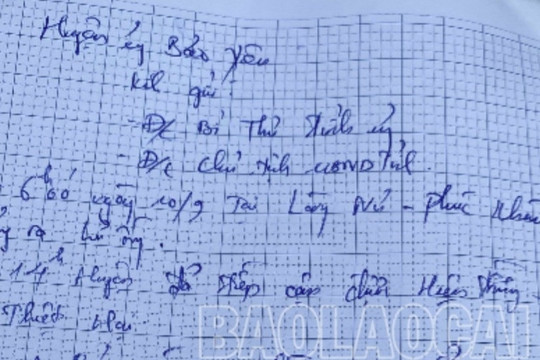 Huyện ủy Bảo Yên
Kính gửi:
- Đ/c Bí Thư Tỉnh ủy
- Đ/c Chủ tịch UBND Tỉnh
6h00 ngày 10/9 Tại Làng Nủ - Phúc Khánh
ra lũ ống.
14h Huyện đã tiếp cận được Hiện Trường
Thiệt Hại
BAOLAOCAI